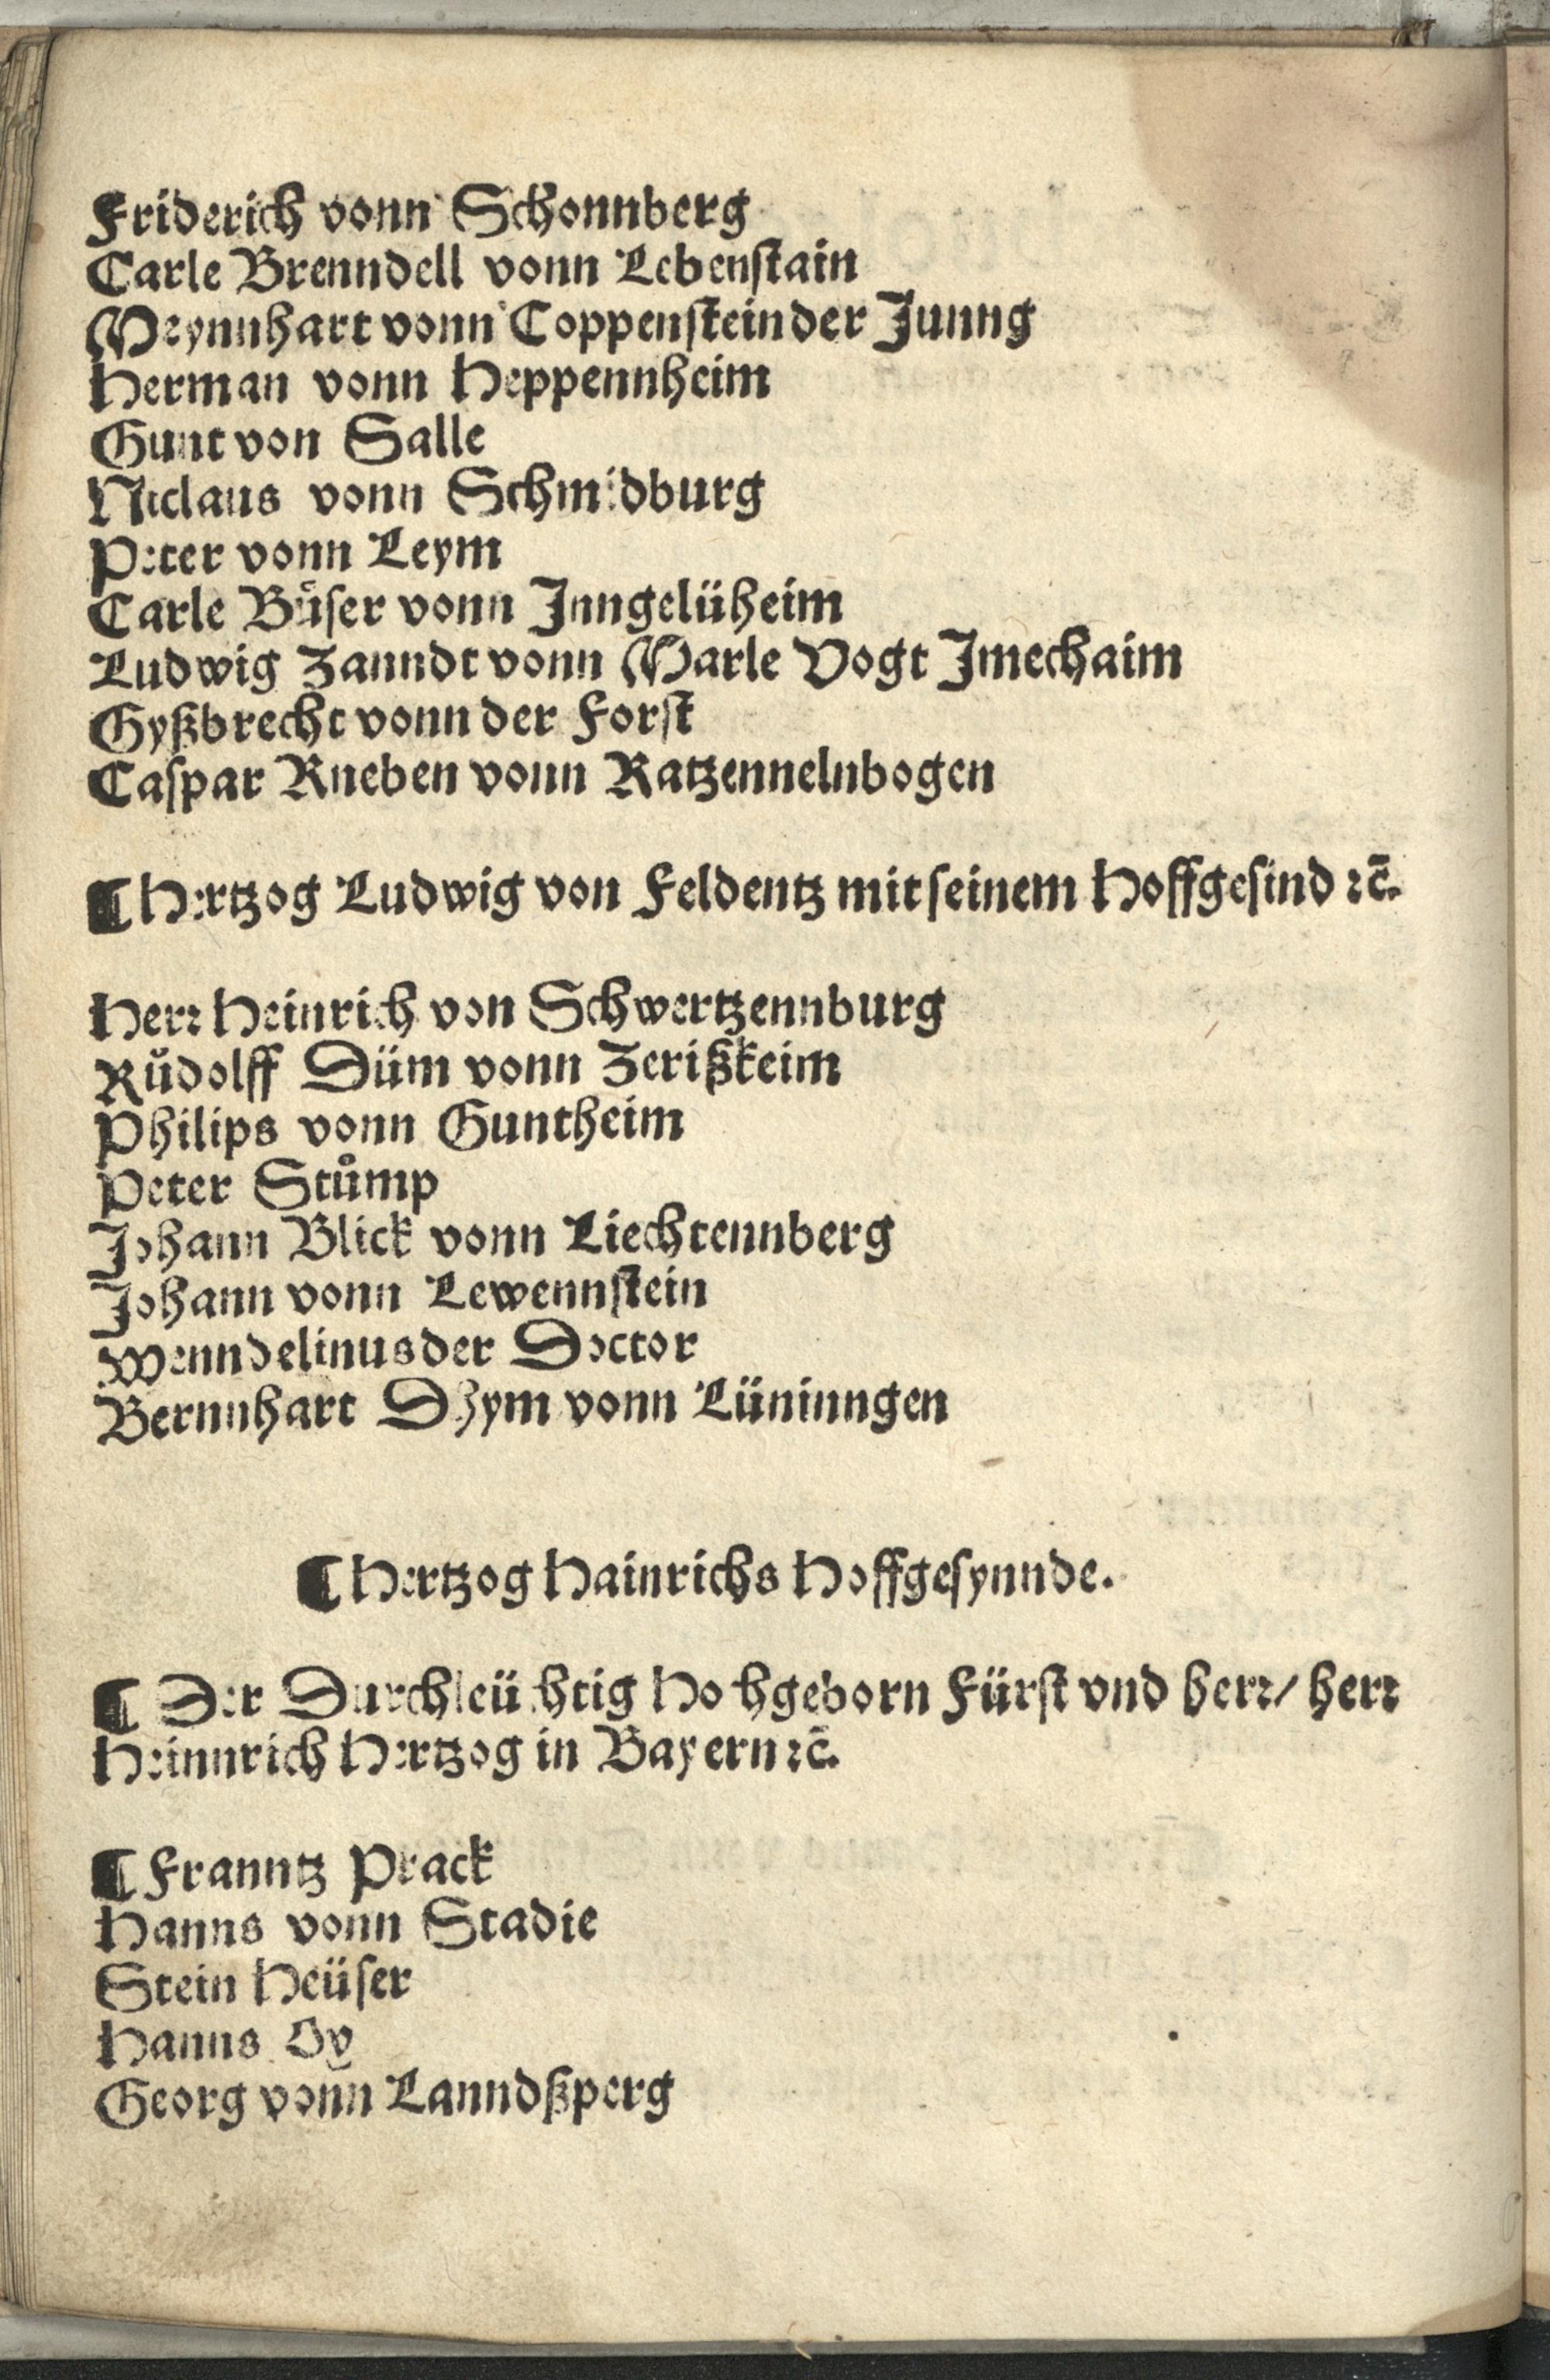 Friderich vonn Schonnberg
Carle Brenndell vonn Lebenſtain
Meynnhart vonn Coppenſtein der Junng
Herman vonn Heppennheim
Gunt von Salle
Niclaus vonn Schmidburg
Peter vonn Leym
Carle Buͤſer vonn Jnngelüheim
Ludwig Zanndt vonn Marle Vogt Jmechaim
Gyßbrecht vonn der Forſt
Caſpar Kneben vonn Katzennelnbogen
¶ Hertzog Ludwig von Feldentz mit ſeinem Hoffgeſind ꝛc̄.
Herꝛ Heinrich von Schwertzennburg
Ruͦdolff Düm vonn Zerißkeim
Philips vonn Guntheim
Peter Stuͦmp
Johann Blick vonn Liechtennberg
Johann vonn Lewennſtein
Wenndelinus der Doctor
Bernnhart Dhym vonn Lüninngen
¶ Hertzog Hainrichs Hoffgeſynnde.
¶ Der Durchleüchtig Hochgeborn Fürſt vnd herꝛ / herꝛ
Heinnrich Hertzog in Bayern ꝛc̄.
¶ Franntz Prack
Hanns vonn Stadie
Stein Heüſer
Hanns Oy
Georg vonn Lanndßperg